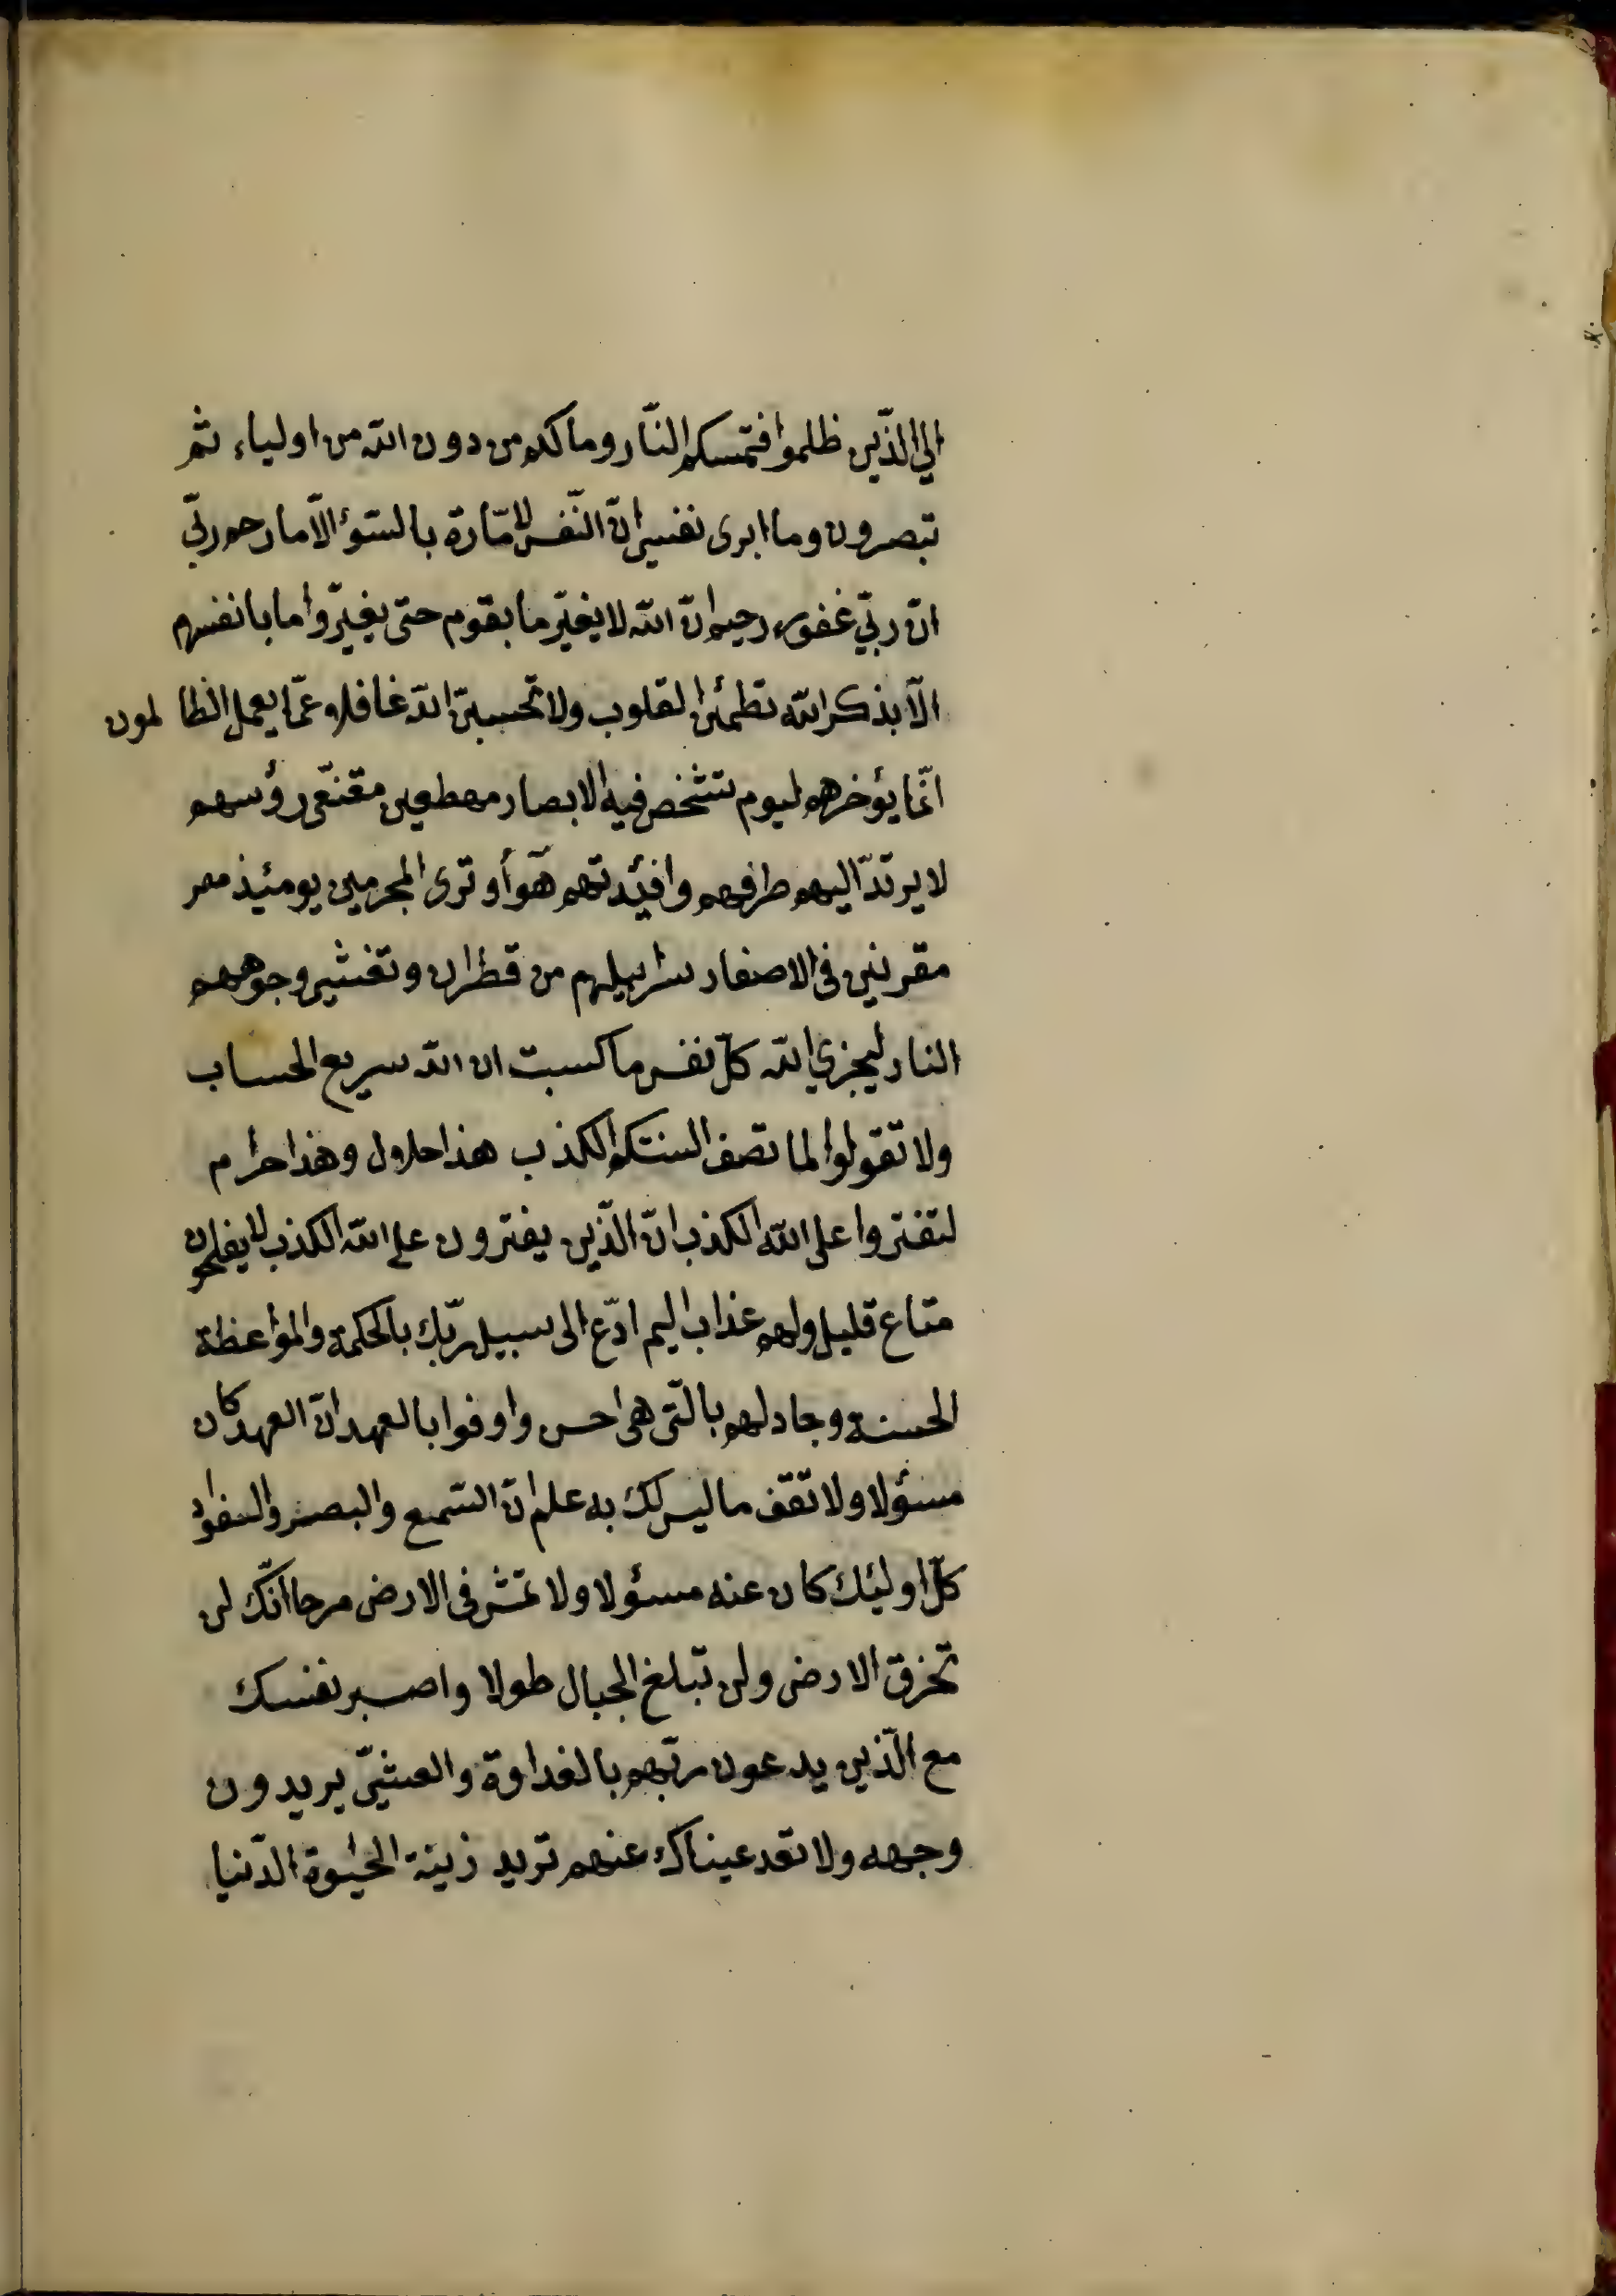 الي الذّين ظلموا فتمسكم النّار وما لكم من دون الله من اولياء ثم
تبصرون وما ابرى نفسي انّ النّفس لامّارة بالسّوء الّا ما رحم ربّي
انّ ربّي غفور رحيم انّ الله لا يغيّر ما بقوم حتى يغيّروا ما بانفسهم
الا بذكر الله تطمئن القلوب ولا تحسبنّ الله غافلا عمّا يعمل الظالمون
انّما يؤخرهم ليوم تشخص فيه الابصار مهطعين مقنعّى رؤسهم
لا يرتدّ اليهم طرفهم وافئدتهم هوآأ وترى المجرمين يومئذ مهر
مقرنين فى الاصفاد سرابيلهم من قطران وتغشي وجوههم
النار ليجزي الله كلّ نفس ما كسبت ان الله سريع الحساب
ولا تقولوا لما تصف السنتكم الكذب هذا حلال وهذا حرام
لتفتروا على الله الكذب انّ الّذين يفترون على الله الكذب لا يفلحون
متاع قليل ولهم عذاب اليم ادّع الى سبيل ربّك بالحكمة والمؤاعظة
الحسنة وجادلهم بالّتى هى احسن واوفوا بالعهد انّ العهد كان
مسؤلا ولا تقف ما ليس لك به علم انّ السّمع والبصر والفواد
كلّ اولئك كان عنه مسؤلا ولا تمش فى الارض مرحا انّك لن
تخرق الارض ولن تبلغ الجبال طولا واصبر نفسك
مع الّذين يدعون ربّهم بالغداوة والعشيّ يريدون
وجهه ولا تعد عيناك عنهم تريد زينة الحيٰوة الدّنيا